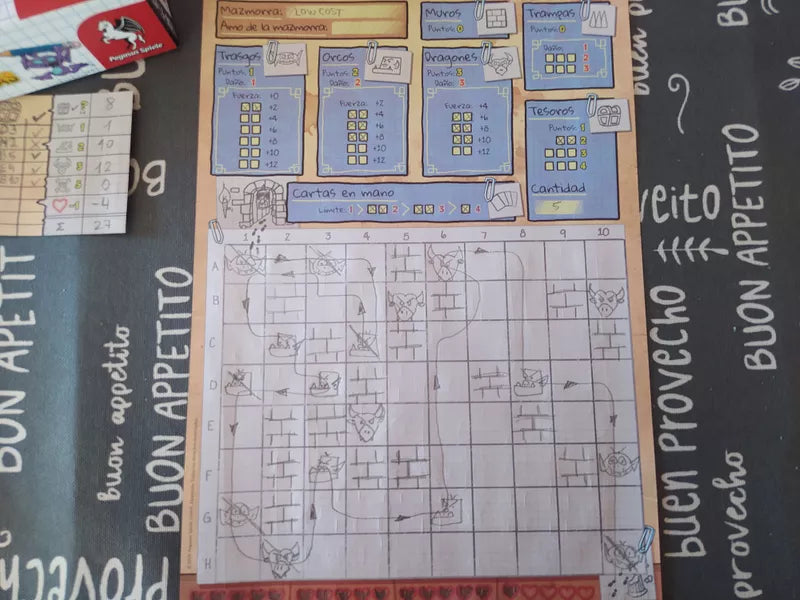 Mazmorra: LOW COST
Amo de la mazmorra:
Muros
Puntos: 0
Trampas
Puntos: 0
Daño: 1
2
3
Trasgos
Puntos: 1
Daño: 1
Fuerza: +0
+2
+4
+6
+8
+10
+12
Orcos
Puntos: 2
Daño: 2
Fuerza: +2
+4
+6
+8
+10
+12
Dragones
Puntos: 3
Daño: 3
Fuerza: +4
+6
+8
+10
+12
Tesoros
Puntos: 1
2
3
4
Cantidad
5
Cartas en mano
Límite: 1 > 2 > 3 > 4
1 2 3 4 5 6 7 8 9 10
A
B
C
D
E
F
G
H
Pegasus Spiele
8
1
10
12
0
-1 -4
Σ 27
BON APPETIT
buon appetito
BUON APPETITO
Provech
buen provecho
BUON APPETITO
buen provecho
provecho
BUON APPETITO